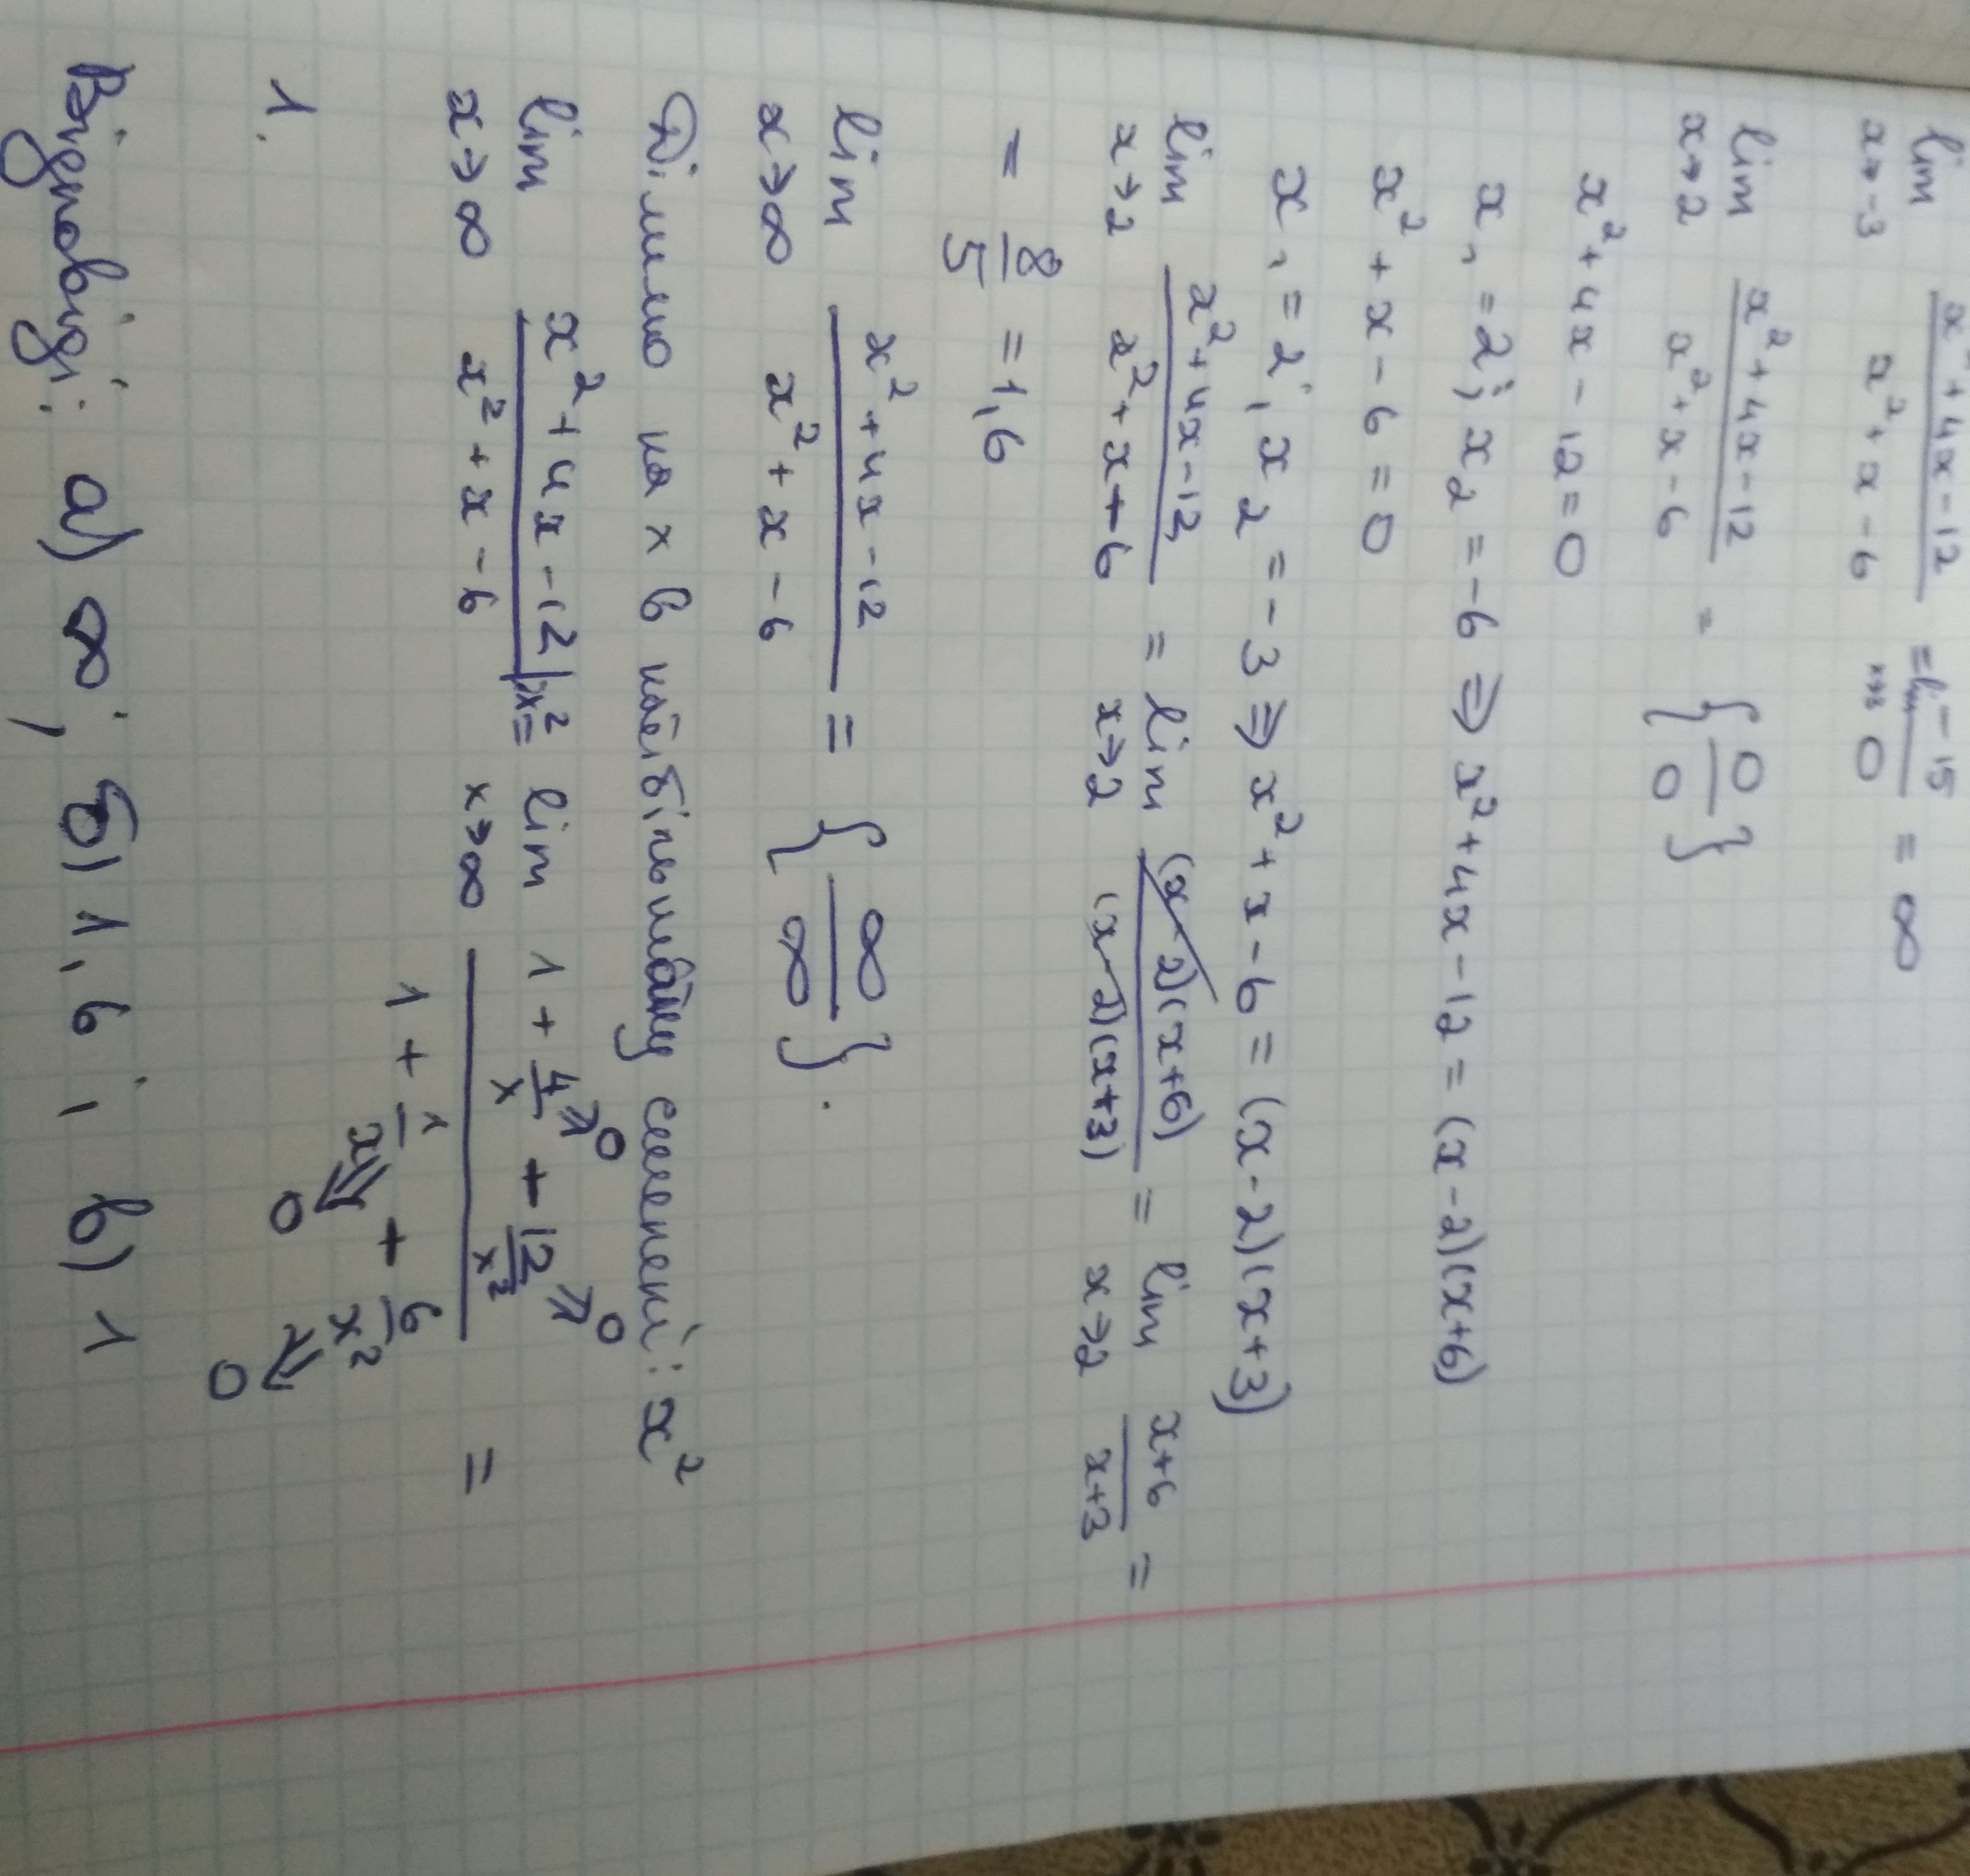 lim x→-3 x²+4x-12 / x²+x-6 = lim x→-3 -15/0 = ∞
lim x→2 x²+4x-12 / x²+x-6 = {0/0}
x²+4x-12=0
x₁=2; x₂=-6 ⇒ x²+4x-12=(x-2)(x+6)
x²+x-6=0
x₁=2; x₂=-3 ⇒ x²+x-6=(x-2)(x+3)
lim x→2 x²+4x-12 / x²+x+6 = lim x→2 (x-2)(x+6) / (x-2)(x+3) = lim x→2 x+6 / x+3 =
= 8/5 = 1,6
lim x→∞ x²+4x-12 / x²+x-6 = {∞/∞}.
Ділимо на x в найбільшому степені: x²
lim x→∞ x²+4x-12 / x²+x-6 |:x² = lim x→∞ 1 + 4/x ⇒0 + 12/x² ⇒0 / 1 + 1/x ⇒0 + 6/x² ⇒0 =
1.
Відповіді: а) ∞; б) 1,6; в) 1